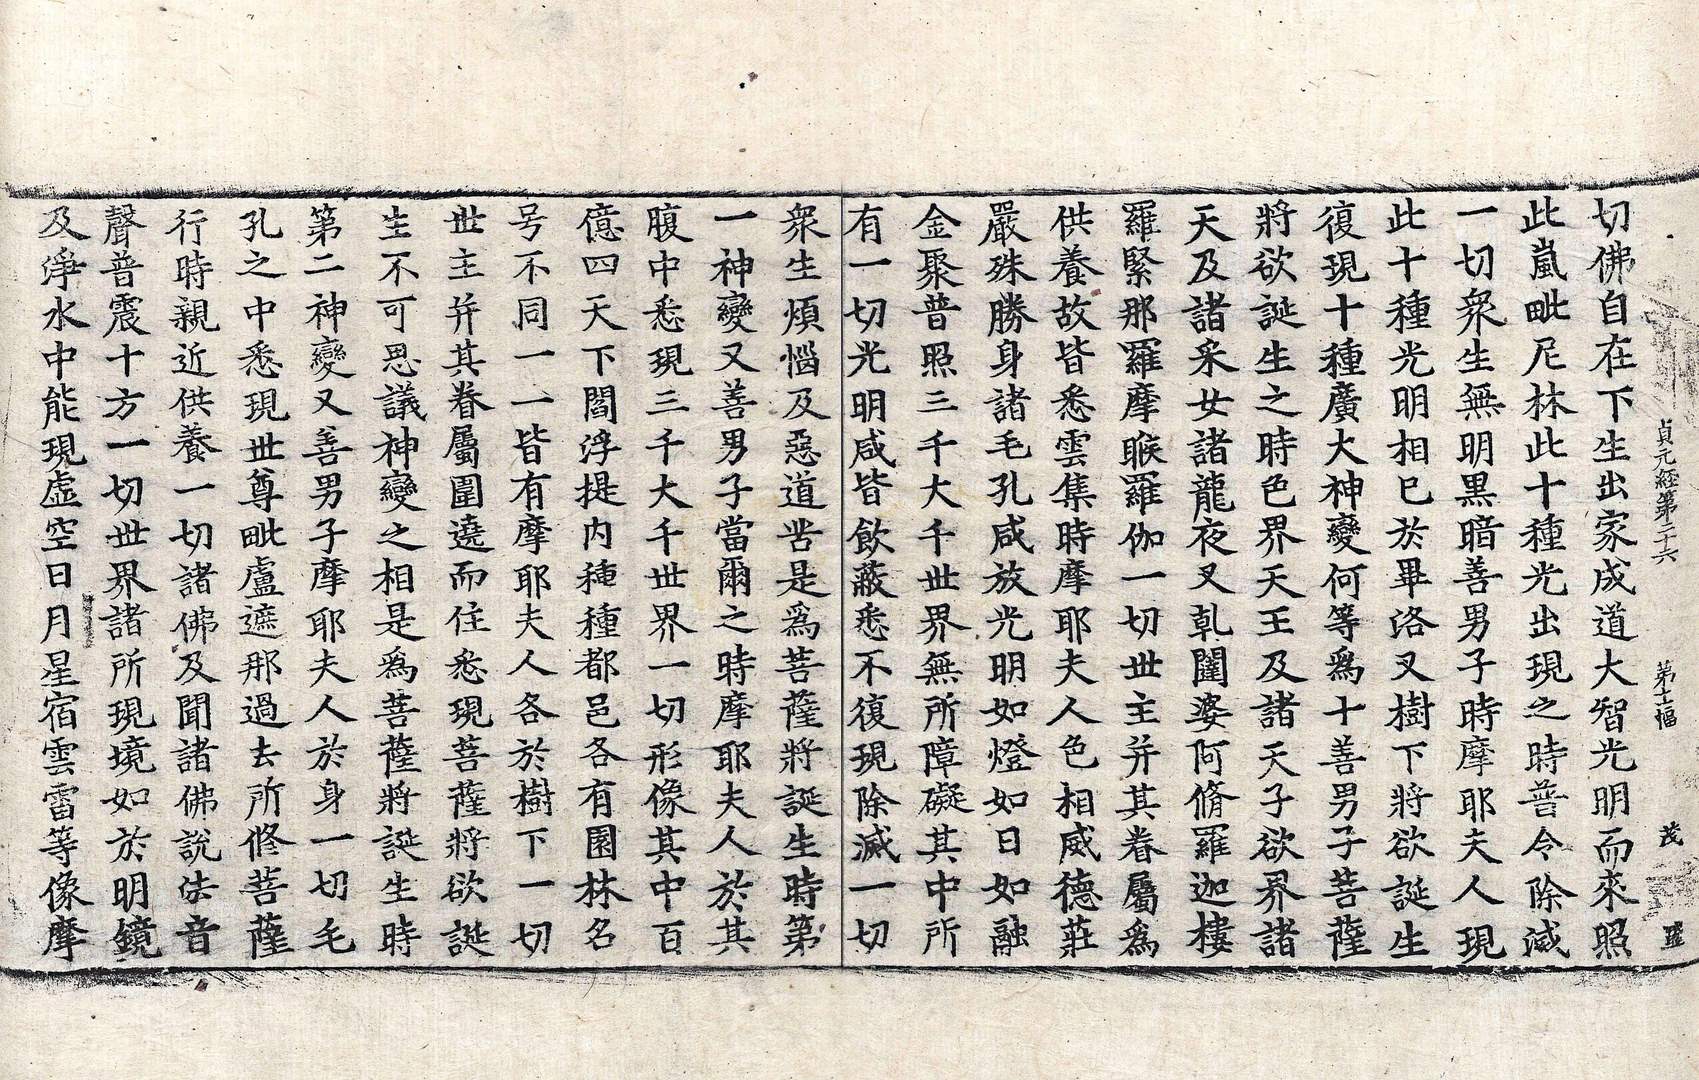 貞元経第二十六 第十二幅 茂
切佛自在下生出家成道大智光明而來照
此嵐毗尼林此十種光出現之時普令除滅
一切衆生無明黑暗善男子時摩耶夫人現
此十種光明相已於畢洛叉樹下將欲誕生
復現十種廣大神變何等爲十善男子菩薩
將欲誕生之時色界天王及諸天子欲界諸
天及諸采女諸龍夜叉乹闥婆阿脩羅迦樓
羅緊那羅摩睺羅伽一切世主并其眷屬爲
供養故皆悉雲集時摩耶夫人色相威德莊
嚴殊勝身諸毛孔咸放光明如燈如日如融
金聚普照三千大千世界無所障礙其中所
有一切光明咸皆飲蔽悉不復現除滅一切
衆生煩惱及惡道苦是爲菩薩將誕生時第
一神變又善男子當爾之時摩耶夫人於其
腹中悉現三千大千世界一切形像其中百
億四天下閻浮提内種種都邑各有園林名
号不同一一皆有摩耶夫人各於樹下一切
世主并其眷屬圍遶而住悉現菩薩將欲誕
生不可思議神變之相是爲菩薩將誕生時
第二神變又善男子摩耶夫人於身一切毛
孔之中悉現世尊毗盧遮那過去所修菩薩
行時親近供養一切諸佛及聞諸佛說法音
聲普震十方一切世界諸所現境如於明鏡
及淨水中能現虛空日月星宿雲雷等像摩